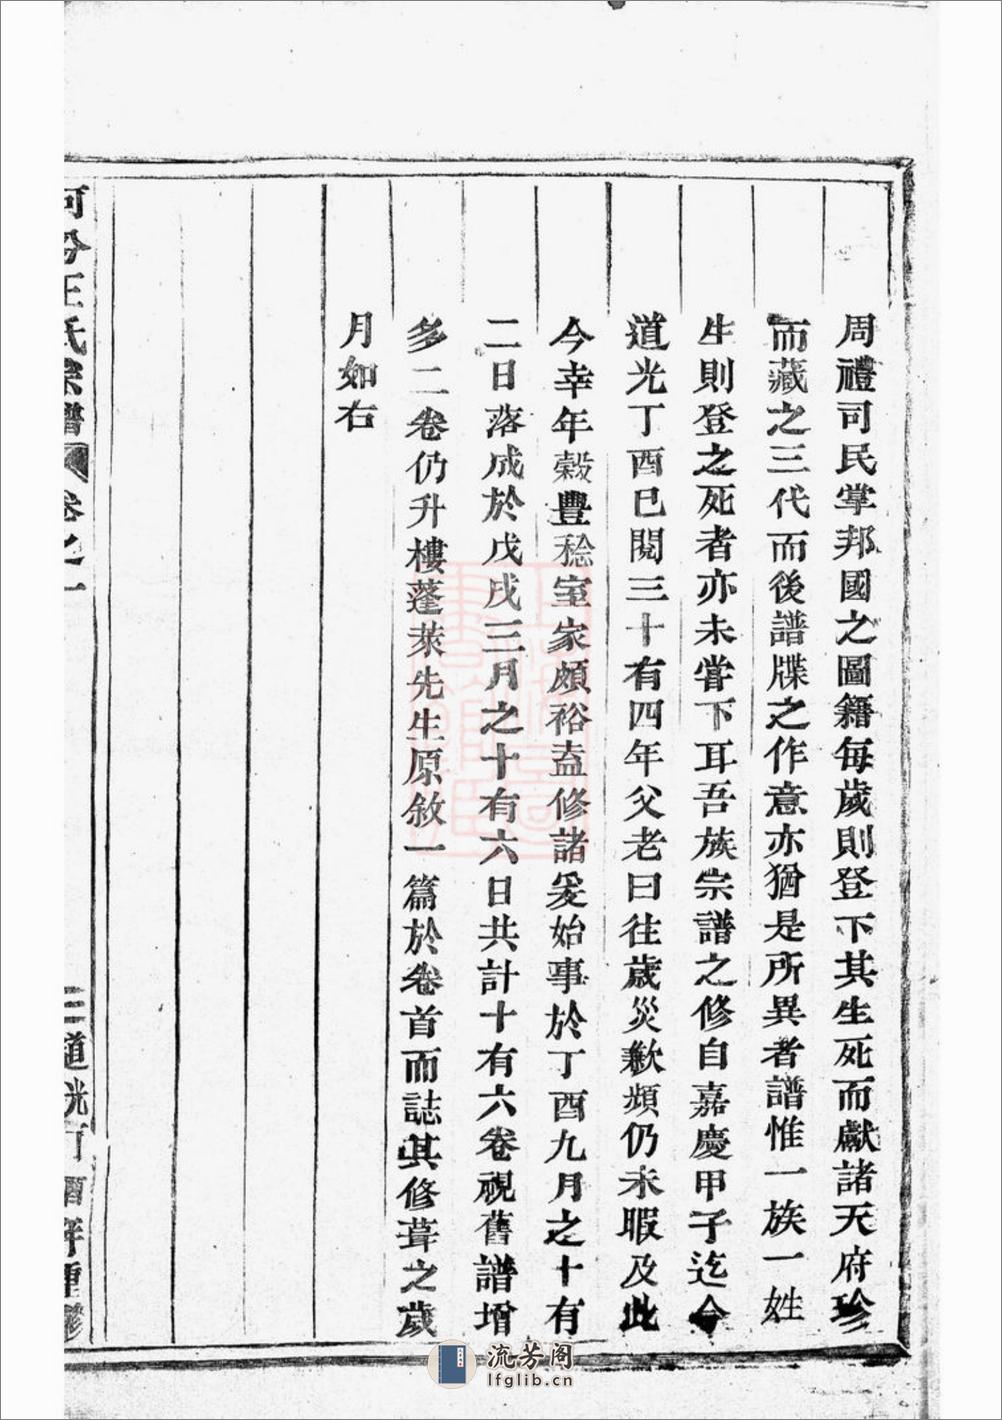 周禮司民掌邦國之圖籍每歲則登下其生死而獻諸天府珍
而藏之三代而後譜牒之作意亦猶是所異者譜惟一族一姓
生則登之死者亦未嘗下耳吾族宗譜之修自嘉慶甲子迄今
道光丁酉已閱三十有四年父老曰往歲災歉頻仍未暇及此
今幸年穀豐稔室家頗裕盍修諸爰始事於丁酉九月之十有
二日落成於戊戌三月之十有六日共計十有六卷視舊譜增
多二卷仍升樓蓬萊先生原敘一篇於卷首而誌其修葺之歲
月如右
河汾王氏宗譜 卷之一 三 道光丁酉年重
流芳阁
lfglib.cn